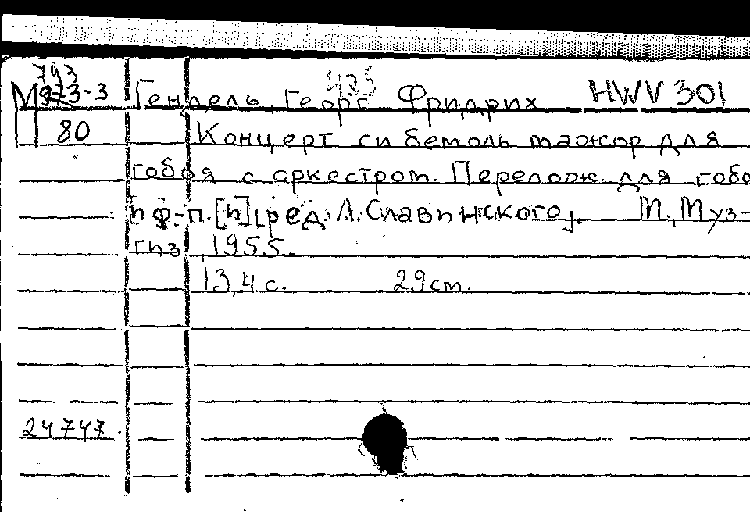 793
М 323-3 Гендель, Георг Фридрих HWV 301
П 80 Концерт си бемоль мажор для
гобоя с аркестром. Перелож. для гобо
и ф-п. [и] ред. А. Славинского. М., Муз-
гиз 1955.
13,4 с. 29 см.
24747.